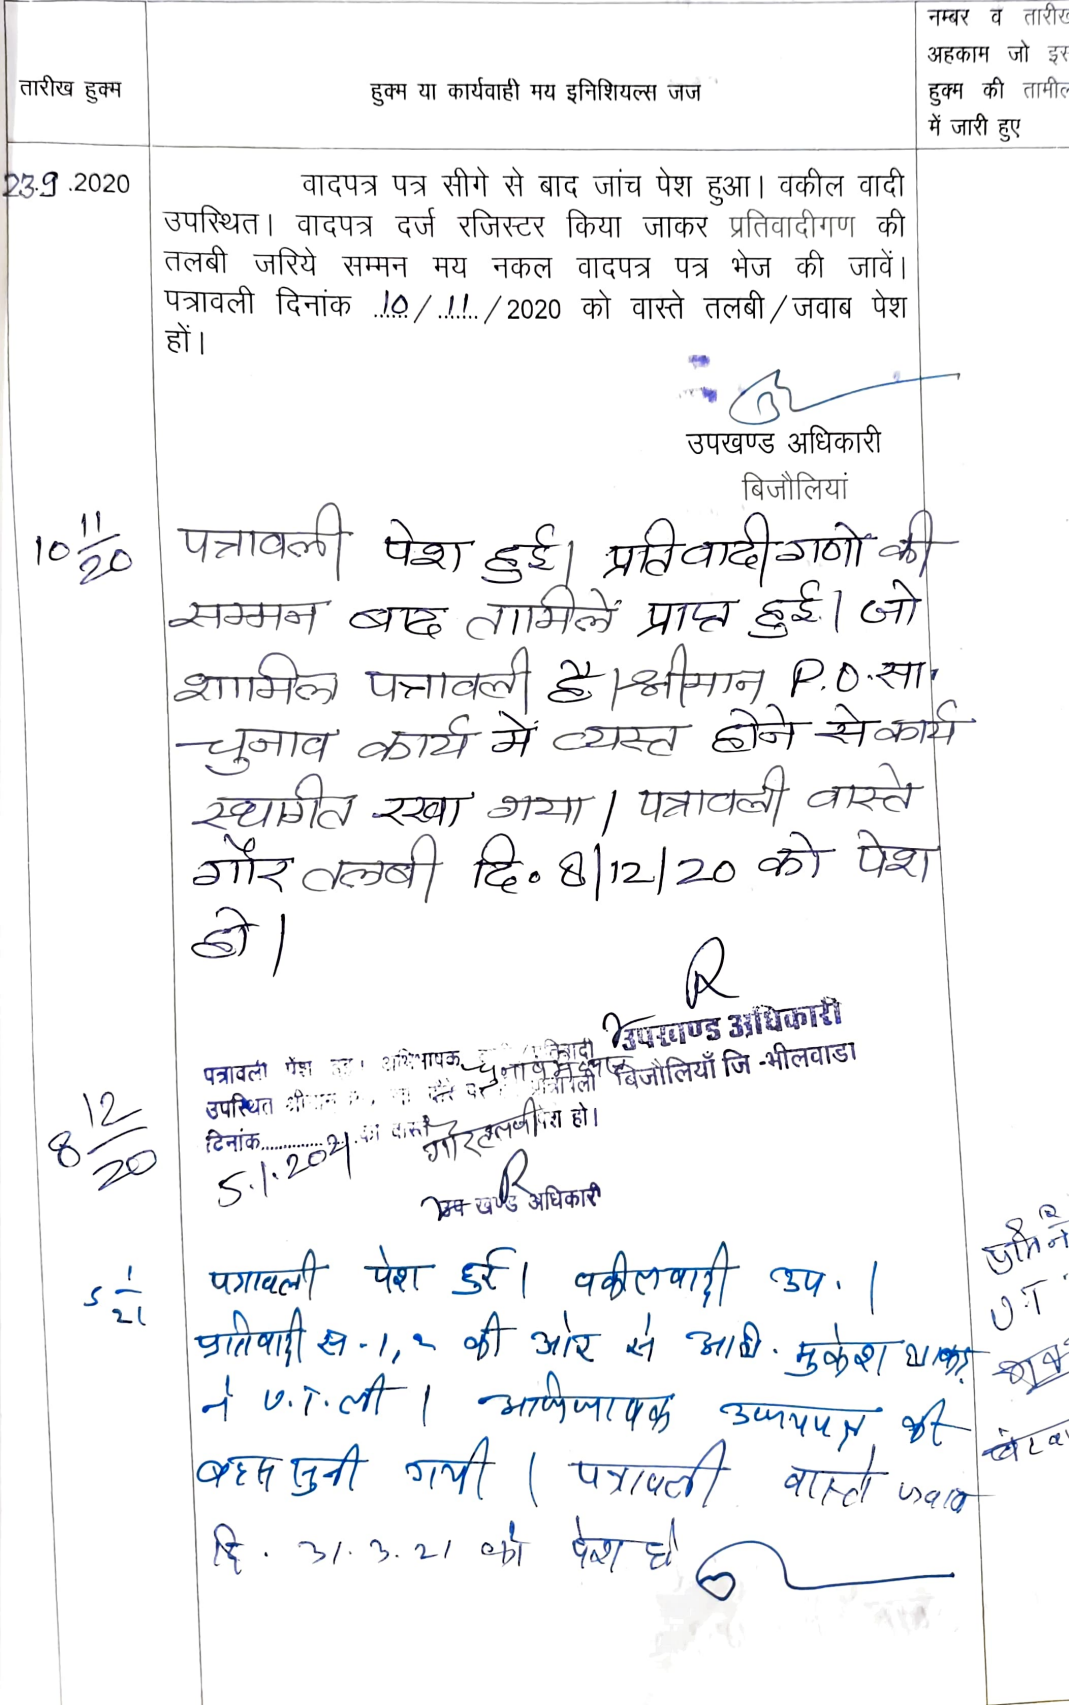 तारीख हुक्म
हुक्म या कार्यवाही मय इनिशियल्स जज
नम्बर व तारीख
अहकाम जो इस
हुक्म की तामील
में जारी हुए
23.9.2020
वादपत्र पत्र सीगे से बाद जांच पेश हुआ। वकील वादी
उपस्थित। वादपत्र दर्ज रजिस्टर किया जाकर प्रतिवादीगण की
तलबी जरिये सम्मन मय नकल वादपत्र पत्र भेज की जावें।
पत्रावली दिनांक 10/11/2020 को वास्ते तलबी/जवाब पेश
हों।
उपखण्ड अधिकारी
बिजौलियां
10 11/20
पत्रावली पेश हुई। प्रतिवादीगणों की
सम्मन बाद तामिलें प्राप्त हुई। जो
शामिल पत्रावली है। श्रीमान P.O. सा.
चुनाव कार्य में व्यस्त होने से कार्य
स्थगीत रखा गया। पत्रावली वास्ते
गौर तलबी दि. 8/12/20 को पेश
हो।
उपखण्ड अधिकारी
बिजौलियाँ जि-भीलवाडा
8 12/20
पत्रावली पेश अभिभाषक
उपस्थित
दिनांक 5.1.2021 को वास्ते गौर तलबी पेश हो।
खण्ड अधिकारी
5 1/21
पत्रावली पेश हुई। वकील वादी उप.।
प्रतिवादी स.-1,2 की ओर से अधि. मुकेश धाकड़
ने U.T. ली। अभिभाषक उभयपक्ष की
बहस सुनी गयी। पत्रावली वास्ते जवाब
दि. 31.3.21 को पेश हो
U.T